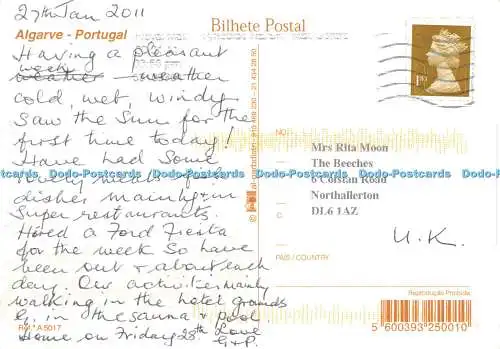 27th Jan 2011
Bilhete Postal
Algarve - Portugal
Having a pleasant
week
weather weather
cold, wet, windy
Saw the Sun for the
first time today!
Have had some
lovely meals fish
dishes mainly in
Super restaurants.
Hired a Ford Fiesta
for the week so have
been out & about each
day. Our activities mainly
walking in the hotel grounds
& in the sauna & pool.
Home on Friday 28th Love
G+P.
Mrs Rita Moon
The Beeches
Corsian Road
Northallerton
DL6 1AZ
U.K.
NO
PAÍS / COUNTRY
Reprodução Proibida
Ref.ª A 5017
5 600393 250010
Dodo-Postcards Dodo-Postcards Dodo-Postcards Dodo-Postcards